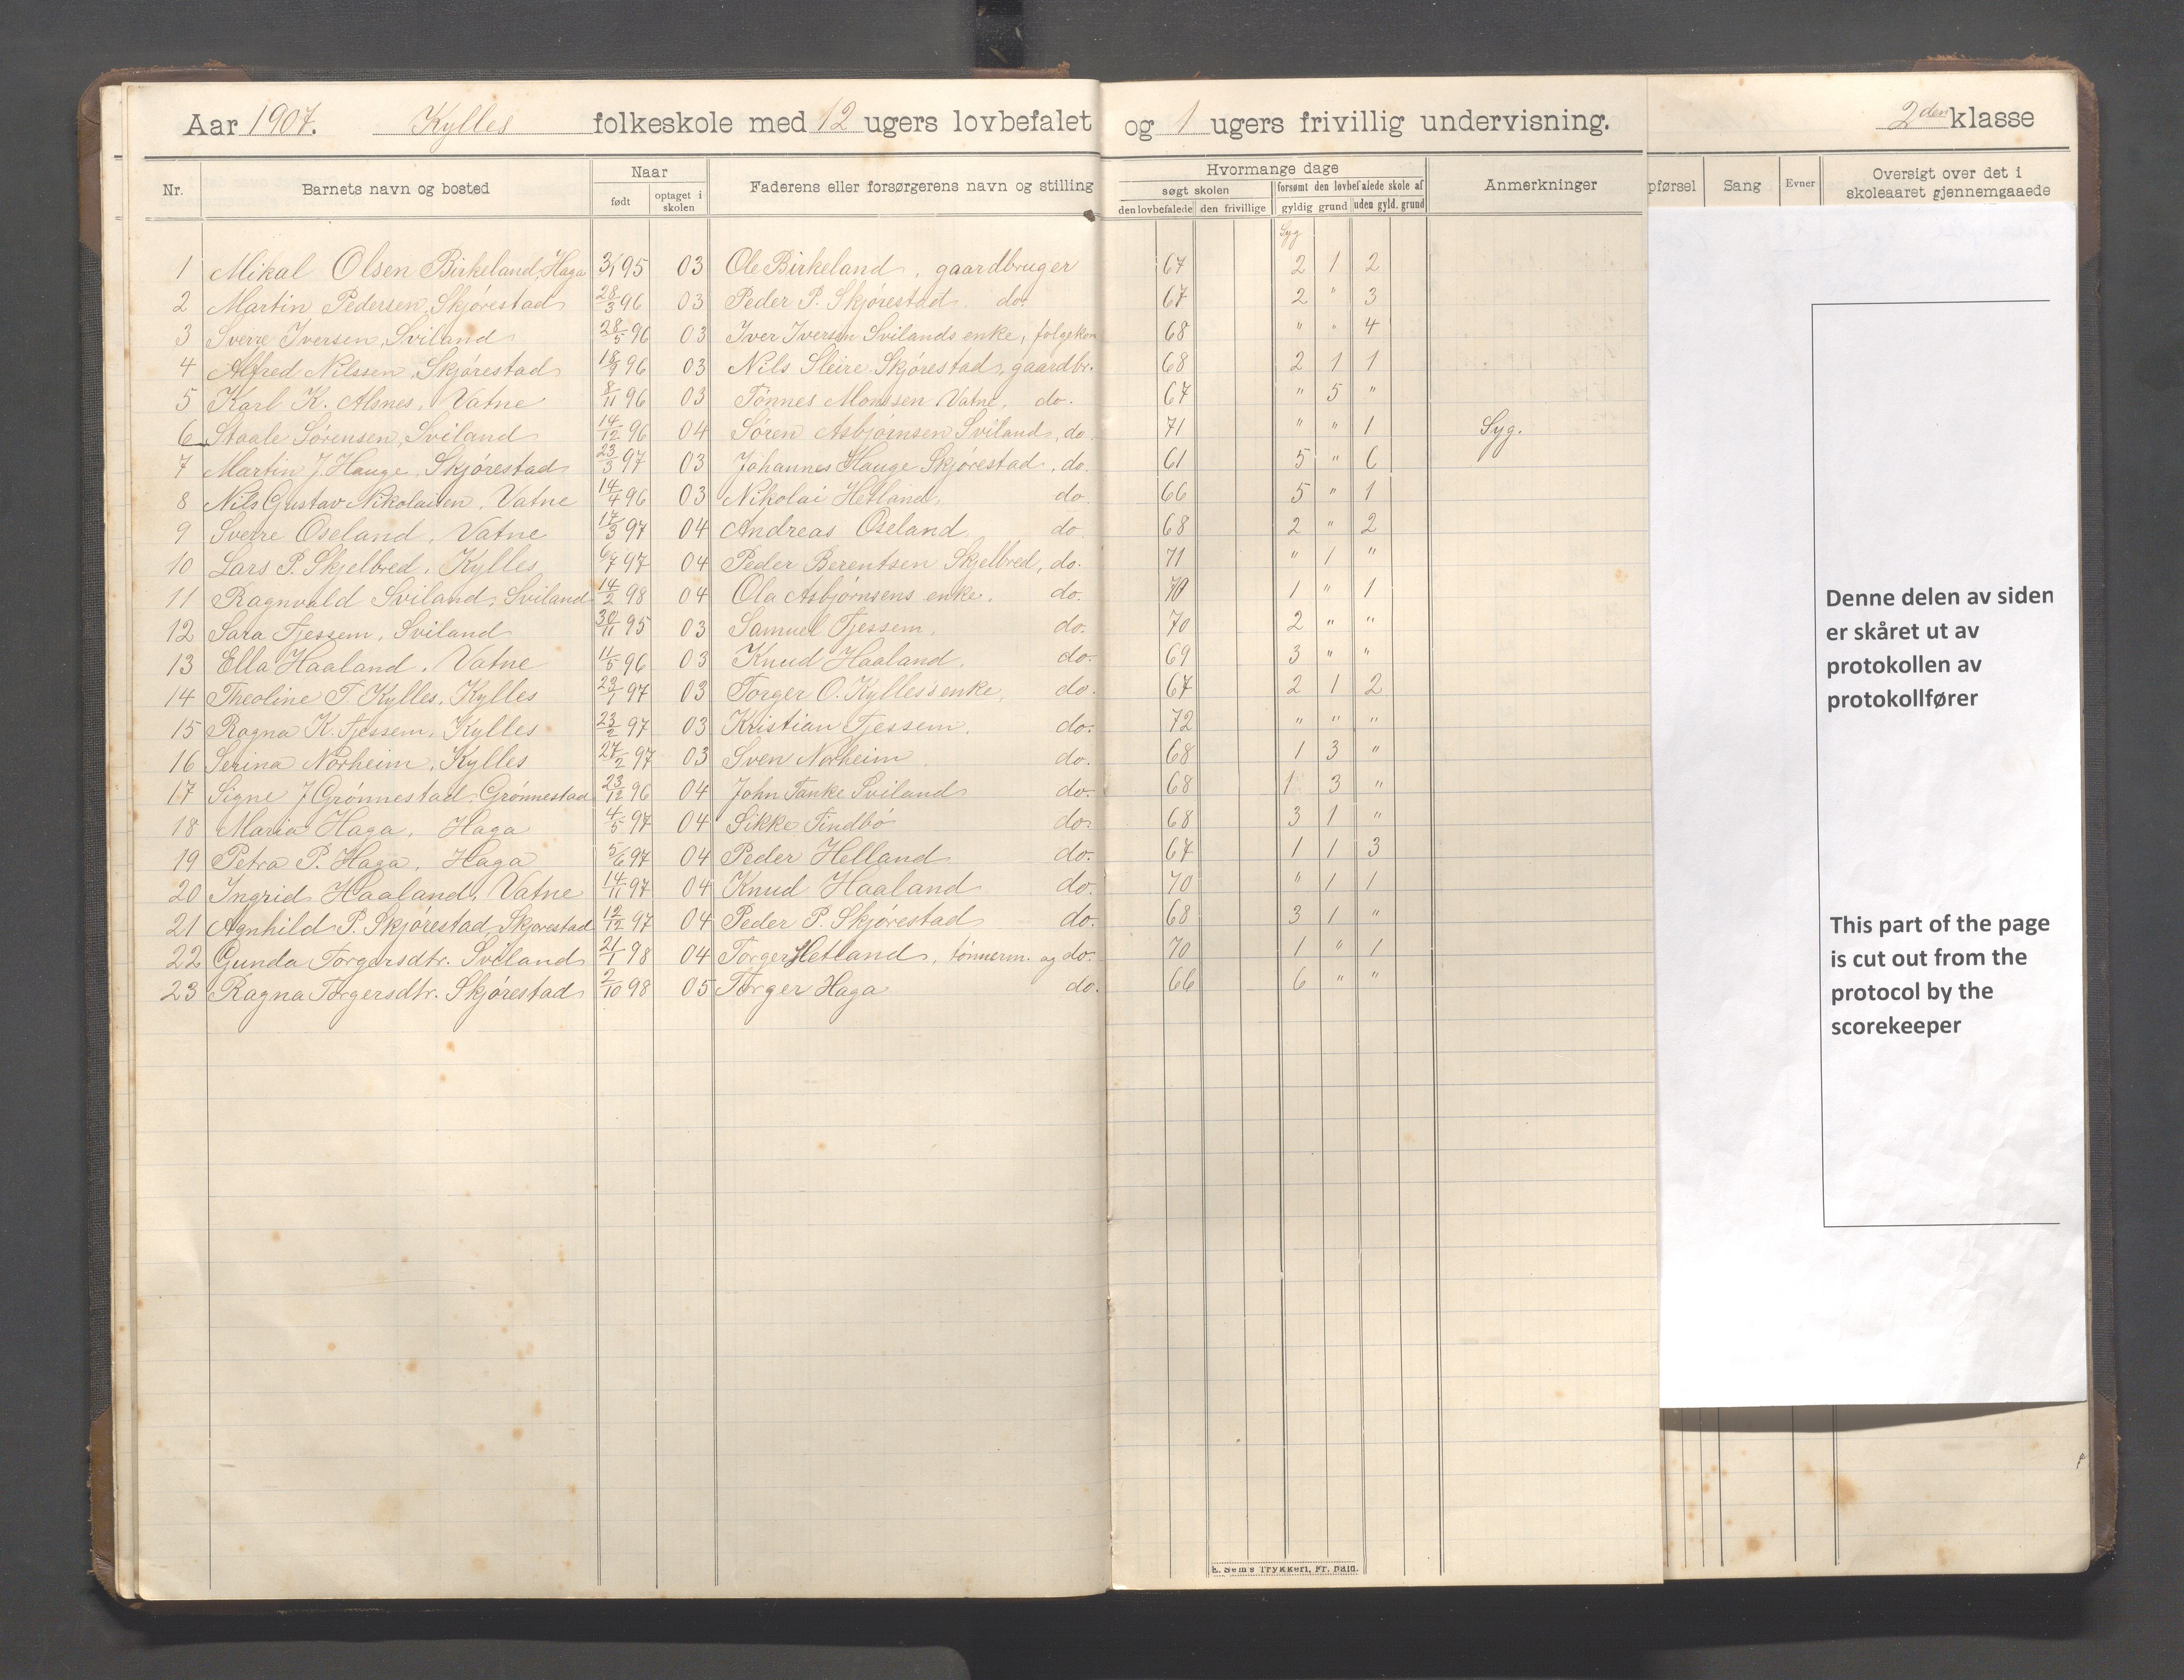 Aar 1907. Kylles folkeskole med 12 ugers lovbefalet og 1 ugers frivillig undervisning. 2den klasse
Nr. Barnets navn og bosted Naar født optaget i skolen Faderens eller forsørgerens navn og stilling
Hvormange dage
søgt skolen forsømt den lovbefalede skole af
den lovbefalede den frivillige gyldig grund uden gyld. grund
Anmerkninger
pførsel Sang Evner Oversigt over det i
skoleaaret gjennemgaaede
Syg
1 Mikal Olsen Birkeland, Haga 3/1 95 03 Ole Birkeland, gaardbruger 67 2 1 2
2 Martin Pedersen, Skjørestad 28/3 96 03 Peder P. Skjørestad. do. 67 2 " 3
3 Sverre Iversen, Sviland 28/5 96 03 Iver Iversen Svilands enke, følgekon 68 " " 4
4 Alfred Nilssen, Skjørestad 18/9 96 03 Nils Sleire Skjørestad, gaardbr. 68 2 1 1
5 Karl K. Alsnes, Vatne 8/11 96 03 Tønnes Monssen Vatne, do. 67 " 5 "
6 Staale Sørensen, Sviland 14/12 96 04 Søren Asbjørnsen Sviland, do. 71 " " 1 Syg.
7 Martin J. Hauge, Skjørestad 23/3 97 03 Johannes Hauge Skjørestad, do. 61 5 " 6
8 Nils Gustav Nikolaisen, Vatne 14/4 96 03 Nikolai Hetland, do. 66 5 " 1
9 Sverre Oseland, Vatne 17/3 97 04 Andreas Oseland, do. 68 2 " 2
10 Lars P. Skjelbred, Kylles 6/7 97 04 Peder Berentsen Skjelbred, do. 71 " 1 "
11 Ragnvald Sviland, Sviland 14/2 98 04 Ola Asbjørnsens enke, do. 70 1 " 1
12 Sara Tjessem, Sviland 30/11 95 03 Samuel Tjessem, do. 70 2 " "
13 Ella Haaland, Vatne 11/5 96 03 Knud Haaland, do. 69 3 " "
14 Theoline T. Kylles, Kylles 23/1 97 03 Torger O. Kylles's enke, do. 67 2 1 2
15 Ragna K. Tjessem, Kylles 23/2 97 03 Kristian Tjessem, do. 72 " " "
16 Serina Norheim, Kylles 27/2 97 03 Sven Norheim, do. 68 1 3 "
17 Signe J. Grønnestad, Grønnestad 23/12 96 04 John Tanke Sviland do. 68 1 3 "
18 Maria Haga, Haga 4/5 97 04 Sikke Tindbø do. 68 3 1 "
19 Petra P. Haga, Haga 5/6 97 04 Peder Helland do. 67 1 1 3
20 Ingrid Haaland, Vatne 14/11 97 04 Knud Haaland do. 70 " 1 1
21 Agnhild P. Skjørestad, Skjørestad 12/12 97 04 Peder P. Skjørestad do. 68 3 1 "
22 Gunda Torgersdtr. Sviland 21/1 98 04 Torger Hetland, tønnerm. og do. 70 1 " 1
23 Ragna Torgersdtr. Skjørestad 2/10 98 05 Torger Haga do. 66 6 " "
Denne delen av siden
er skåret ut av
protokollen av
protokollfører
This part of the page
is cut out from the
protocol by the
scorekeeper
E. Sem's Trykkeri, Fr.hald.